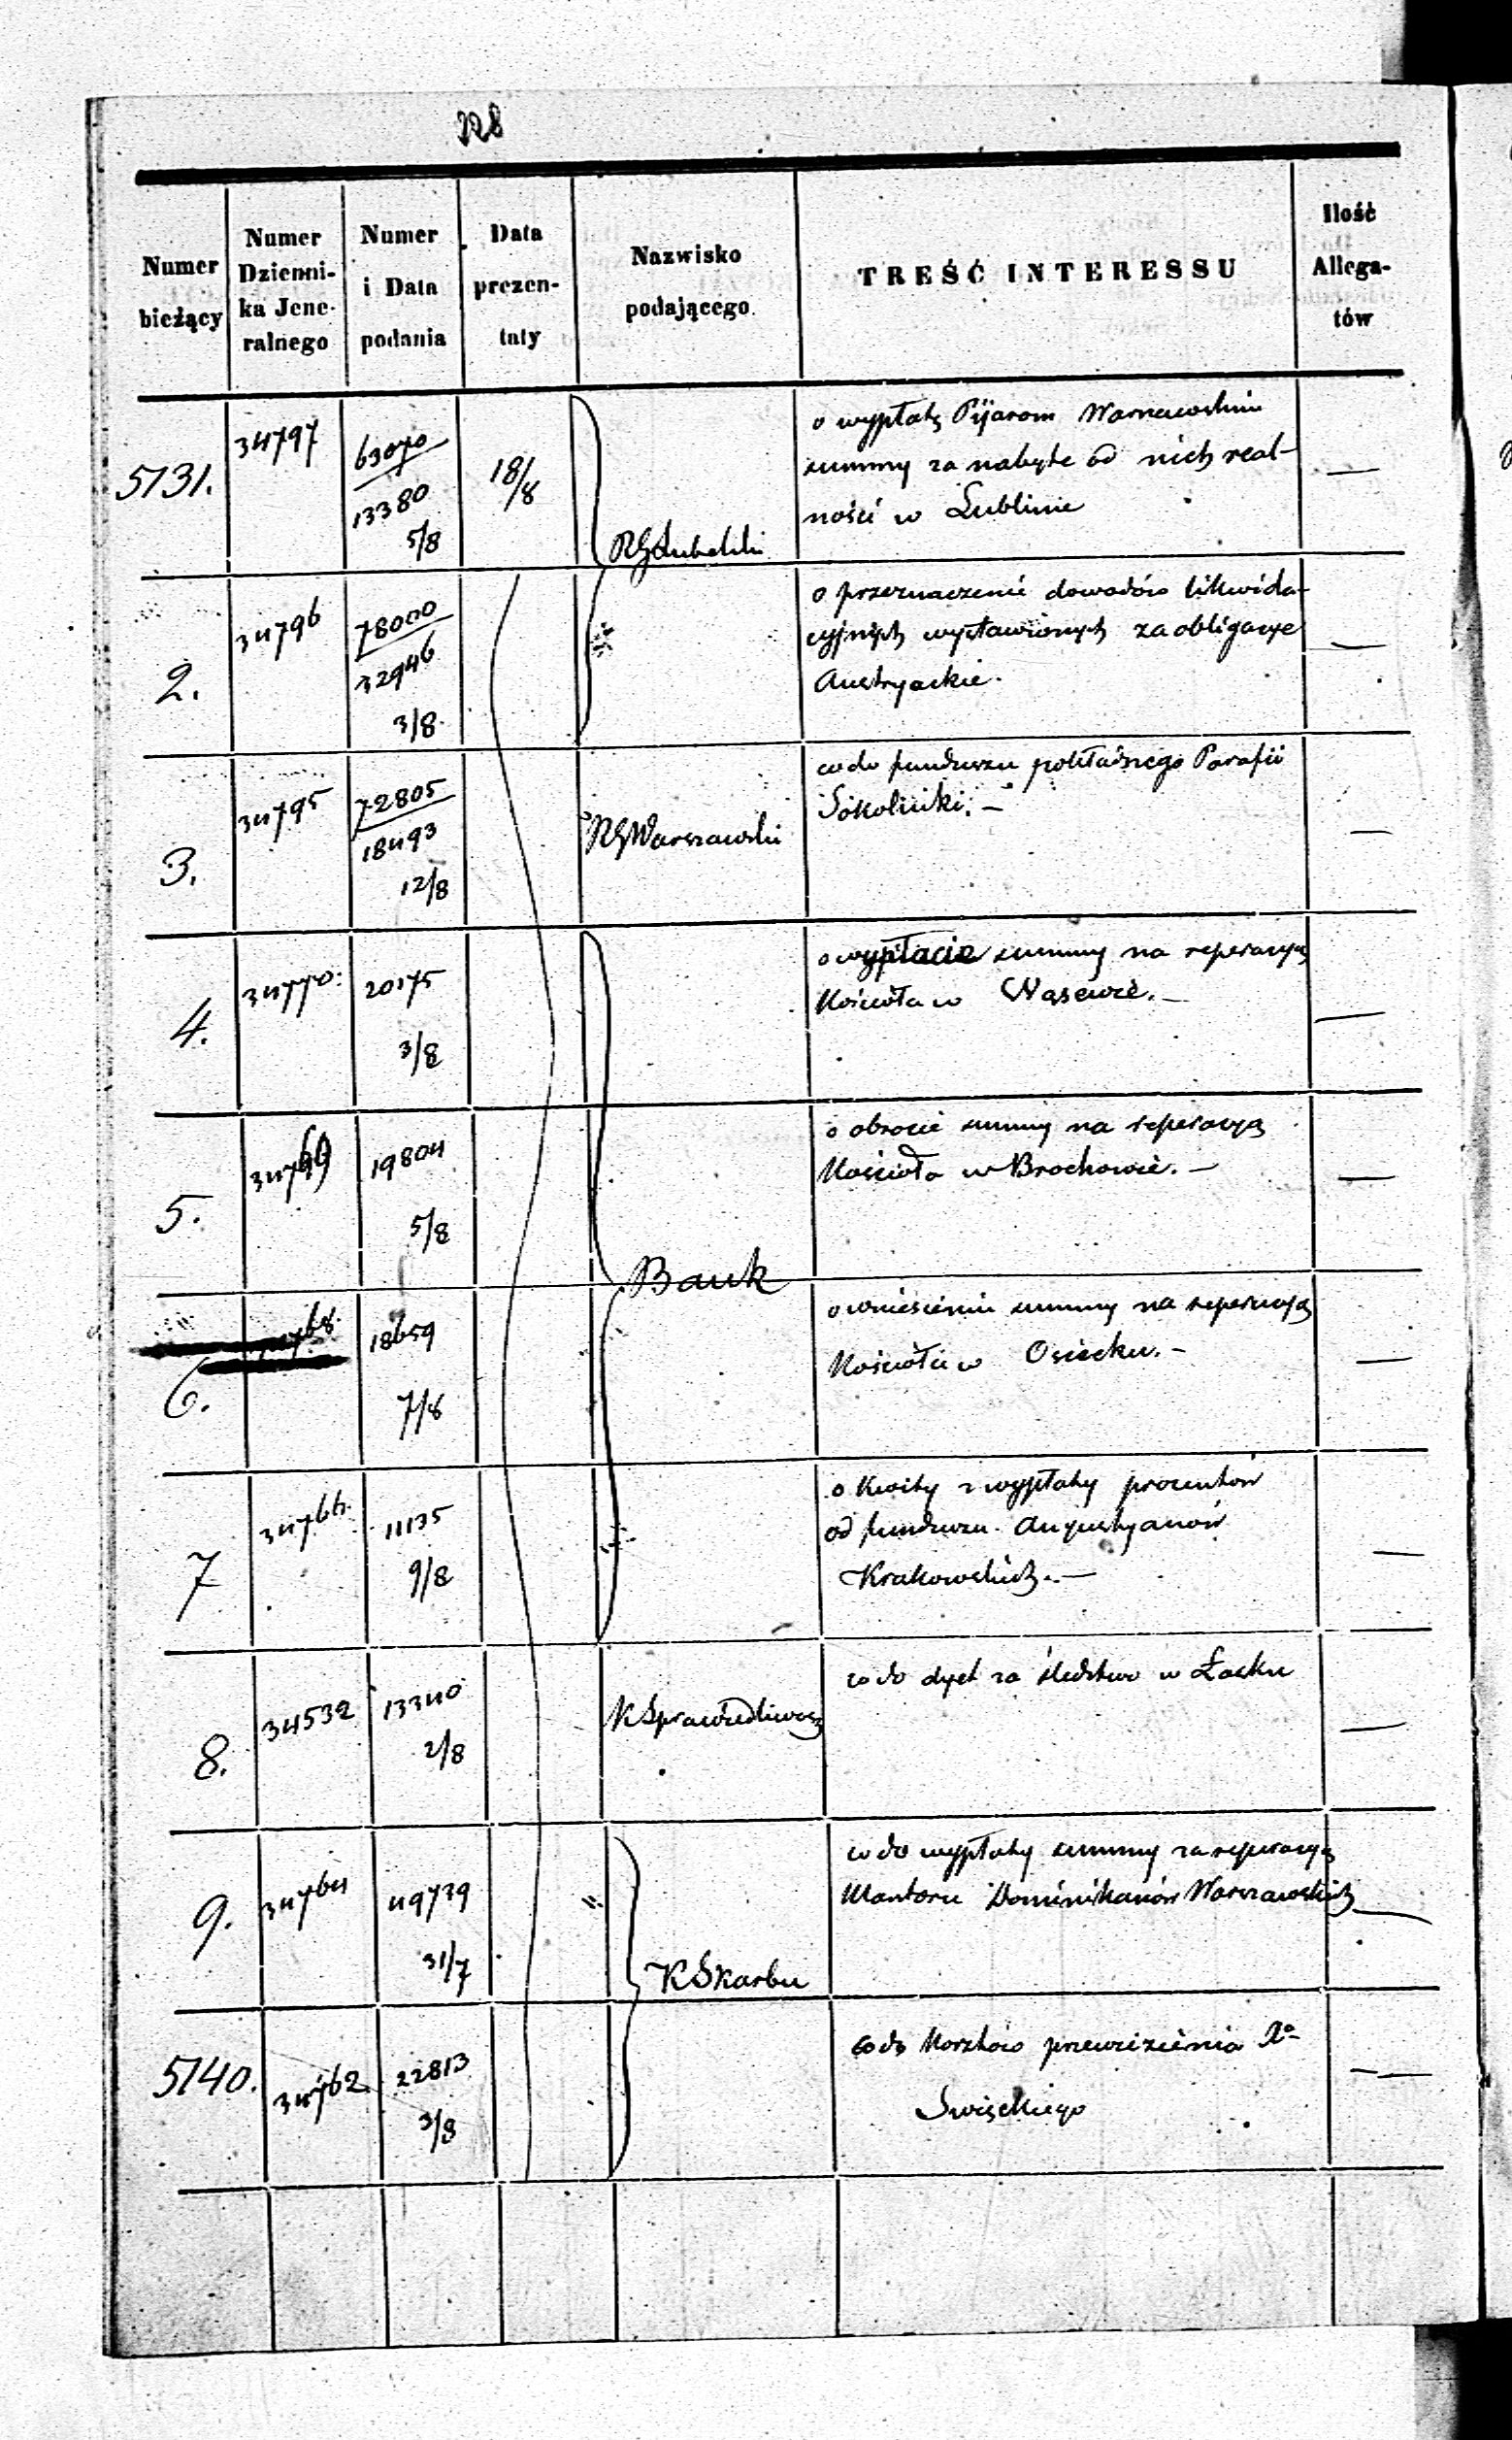 228
Numer bieżący
Numer Dzienni- ka Jene- ralnego
Numer i Data podania
Data prezen- taty
Nazwisko podającego
TREŚĆ INTERESSU
Ilość Allega- tów
5131.
34797
63070
13380
5/8
18/8
RG Lubelski
o wypłatę Pijarom Warszawskim
summy za nabyte od nich real-
ności w Lublinie
—
2.
34796
78000
32946
3/8
o przeznaczenie dowodów likwida-
cyjnych wystawionych za obligacye
Austryackie.
—
3.
34795
72805
18493
12/8
RG Warszawski
co do funduszu pokładnego Parafii
Sokolniki. —
—
4.
34770.
20175
3/8
o wypłacie summy na reperacyą
Kościoła w Wąsewie. —
—
5.
34769
19804
5/8
Bank
o obrocie summy na reperacyą
Kościoła w Brochowie. —
—
6.
68.
18659
7/8
o wniesieniu summy na reperacyą
Kościoła w Osiecku. —
—
7
34766.
11135
9/8
o Kwity z wypłaty procentów
od funduszu Augustyanów
Krakowskich. —
—
8.
34532
13340
2/8
K Sprawiedliwości
co do dyet za śledztwo w Łacku
—
9.
34764
49739
31/7
K Skarbu
co do wypłaty summy za reperacyą
Klasztoru Dominikanów Warszawskich
—
5140.
34762
22813
3/8
co do Kosztów przewiezienia Xa
Święckiego
—